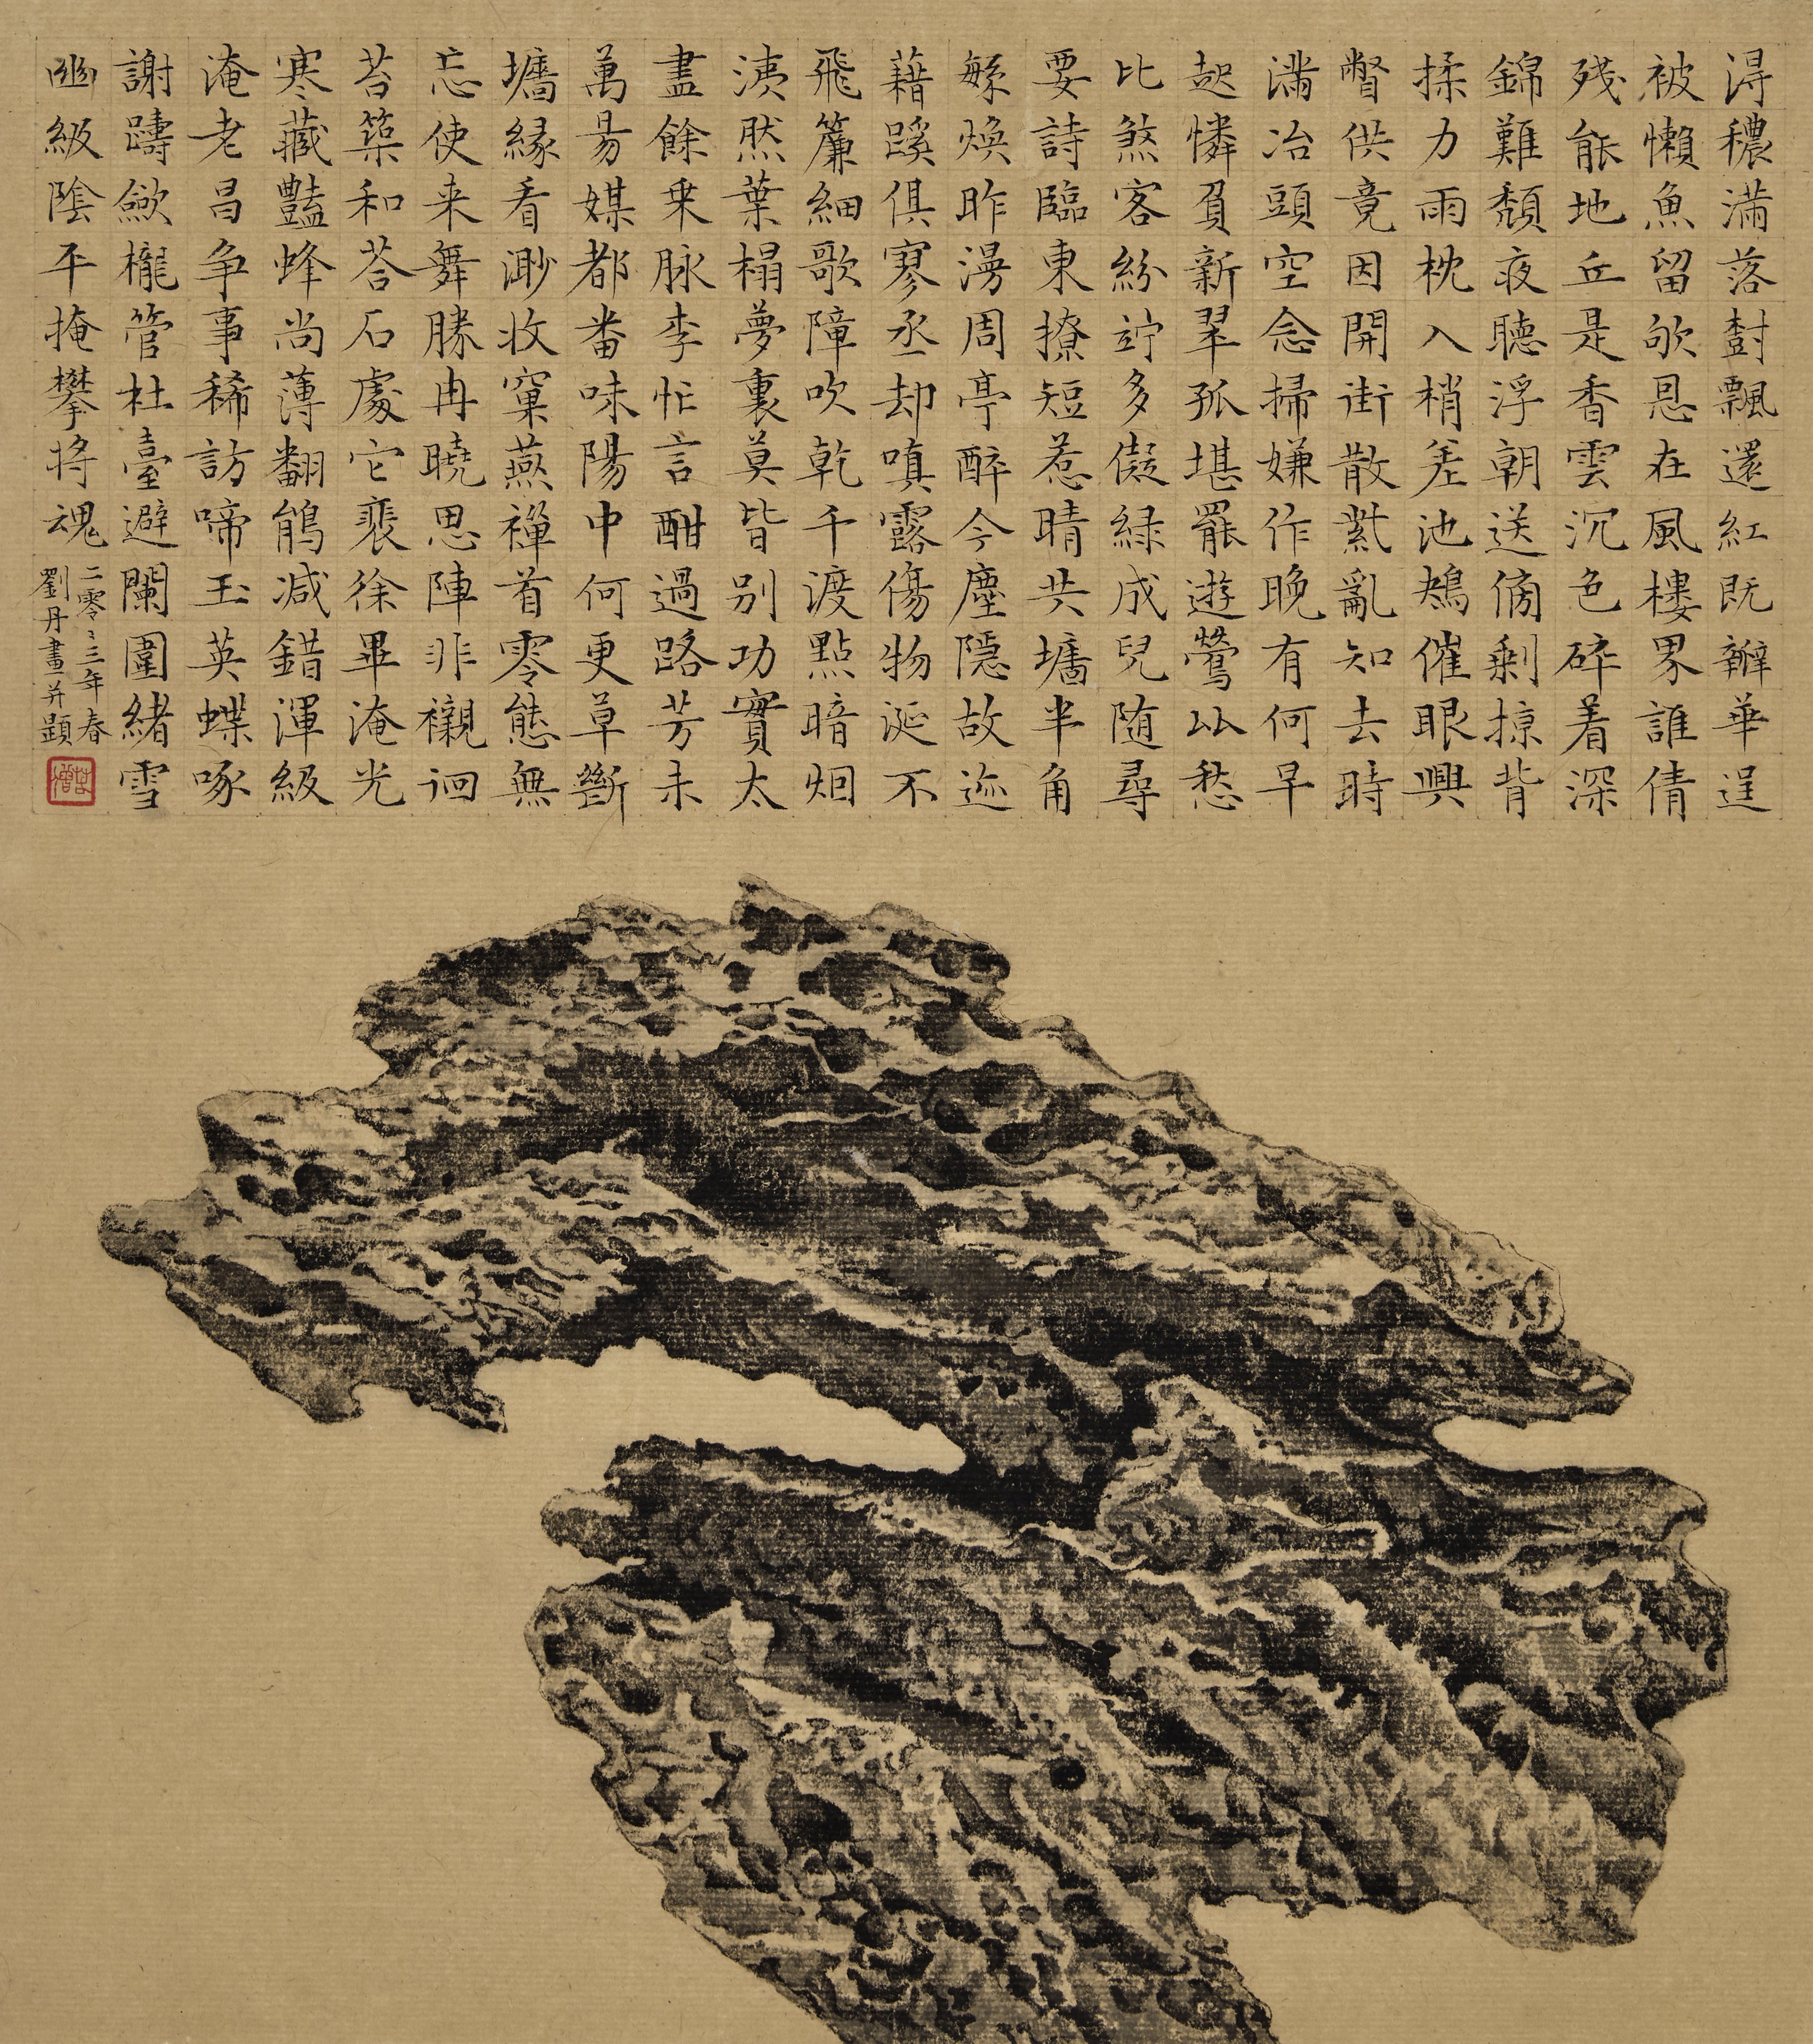 淂穠滿落樹飄還紅既辮華逞
被懶魚留欨恩在風樓界誰倩
殘能地丘是香雲沉色碎着深
錦難頹夜聽浮朝送俏剩掠背
揉力雨枕入梢差池鵡催眼興
瞥供竟因開街散氎亂知去時
滿冶頭空念掃嫌作晚有何早
趂憐負新翠孤堪罷遊鶯從愁
比煞客紛竚多儗緑成兒随尋
要詩臨東撩短惹晴共墻半角
緐煥昨漫周亭醉今塵隱故迹
藉蹊俱寥丞却嗔露傷物涎不
飛簾細歌障吹乾千渡點暗烟
洟然葉榻夢裏莫皆别功實太
盡餘乗脉李忙言酣過路芳未
萬易媒都番味陽中何更草斷
墻緣看渺收窠燕禪首零態無
忘使来舞勝冉曉思陣非襯迴
苔築和荅石處它裴徐畢淹光
寒藏豔蜂尚薄翻鵑减錯渾級
淹老昌争事稀訪啼玉英蝶啄
謝躊歛櫳管杜臺避闌圍緒雪
幽級陰平掩攀将魂
二零二三年春
劉丹畫并題